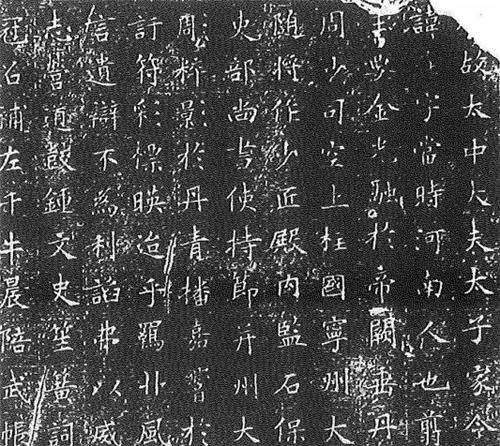 故太中大夫太子家令
諱 字當時河南人也前
金光馳於帝闕 丹
周少司空上柱國寧州大
隨將作少匠殿內監石保
史部尚書使持節并州大
周粹影於丹青播嘉響於
許符彩標映迨乎羈丱風
信遺辯不為利諂弗以威
志 迺鼓鍾文史笙簧詞
冠召補左千牛晨陪武帳